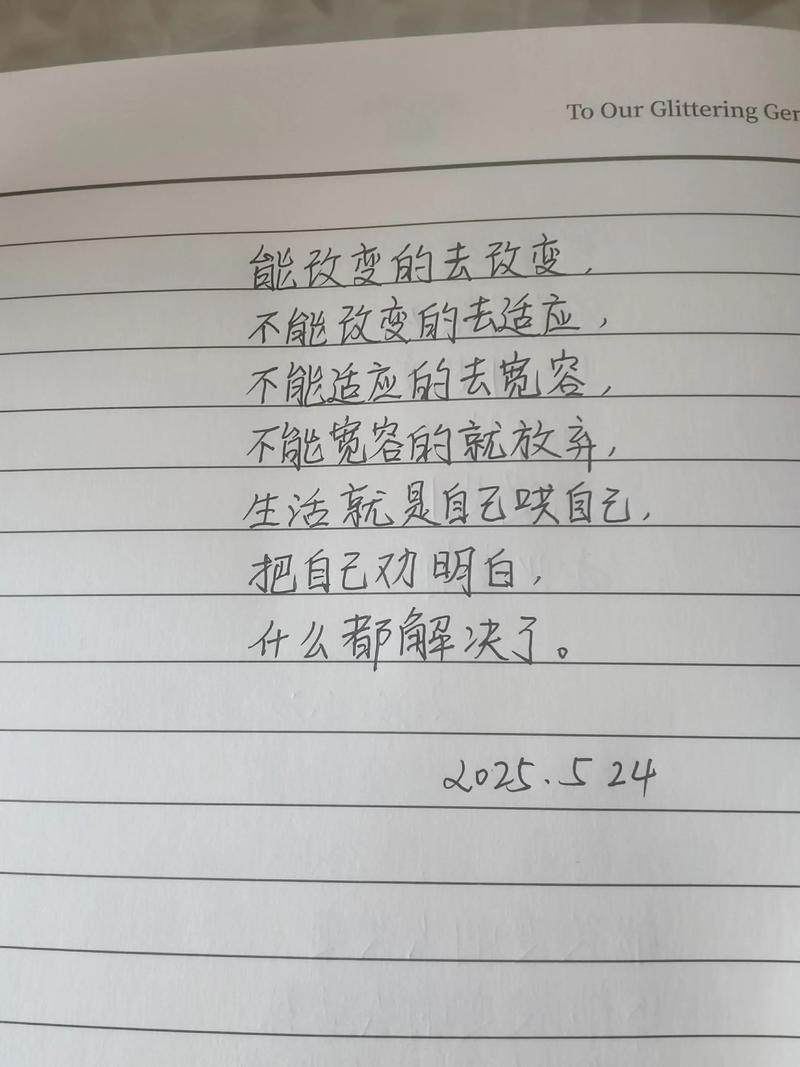 To Our Glittering Ger
能改变的去改变，
不能改变的去适应，
不能适应的去宽容，
不能宽容的就放弃，
生活就是自己哄自己，
把自己劝明白，
什么都解决了。
2025.5 24